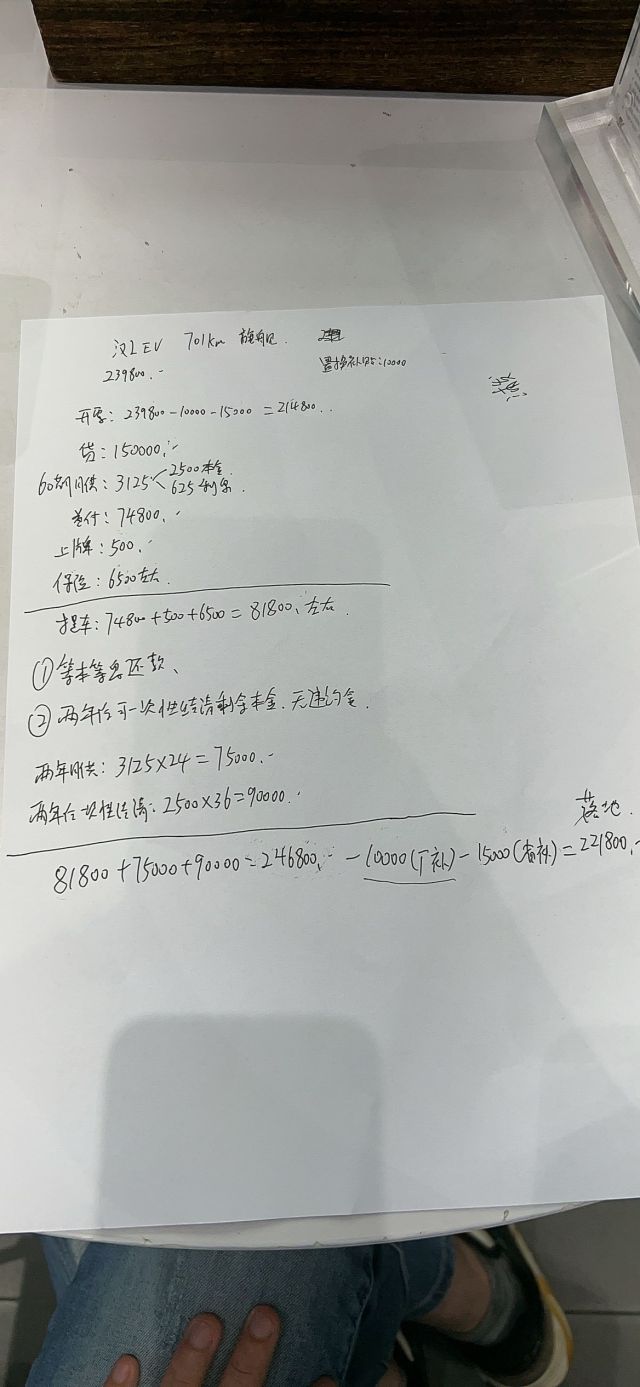 汉L EV 701km 旗舰
239800.-
置换补贴:10000
开票: 239800-10000-15000 =214800..
贷:150000.-
60期月供: 3125 2500本金
625利息
首付: 74800.-
上牌: 500.-
保险: 6500左右.
提车: 74800+500+6500= 81800.左右.
① 等本等息还款、
② 两年后可一次性结清剩余本金.无违约金.
两年月供: 3125×24=75000.-
两年后一次性结清: 2500×36=90000.-
落地.
81800+75000+90000=246800.- -10000(厂补)-15000(省补)=221800.-